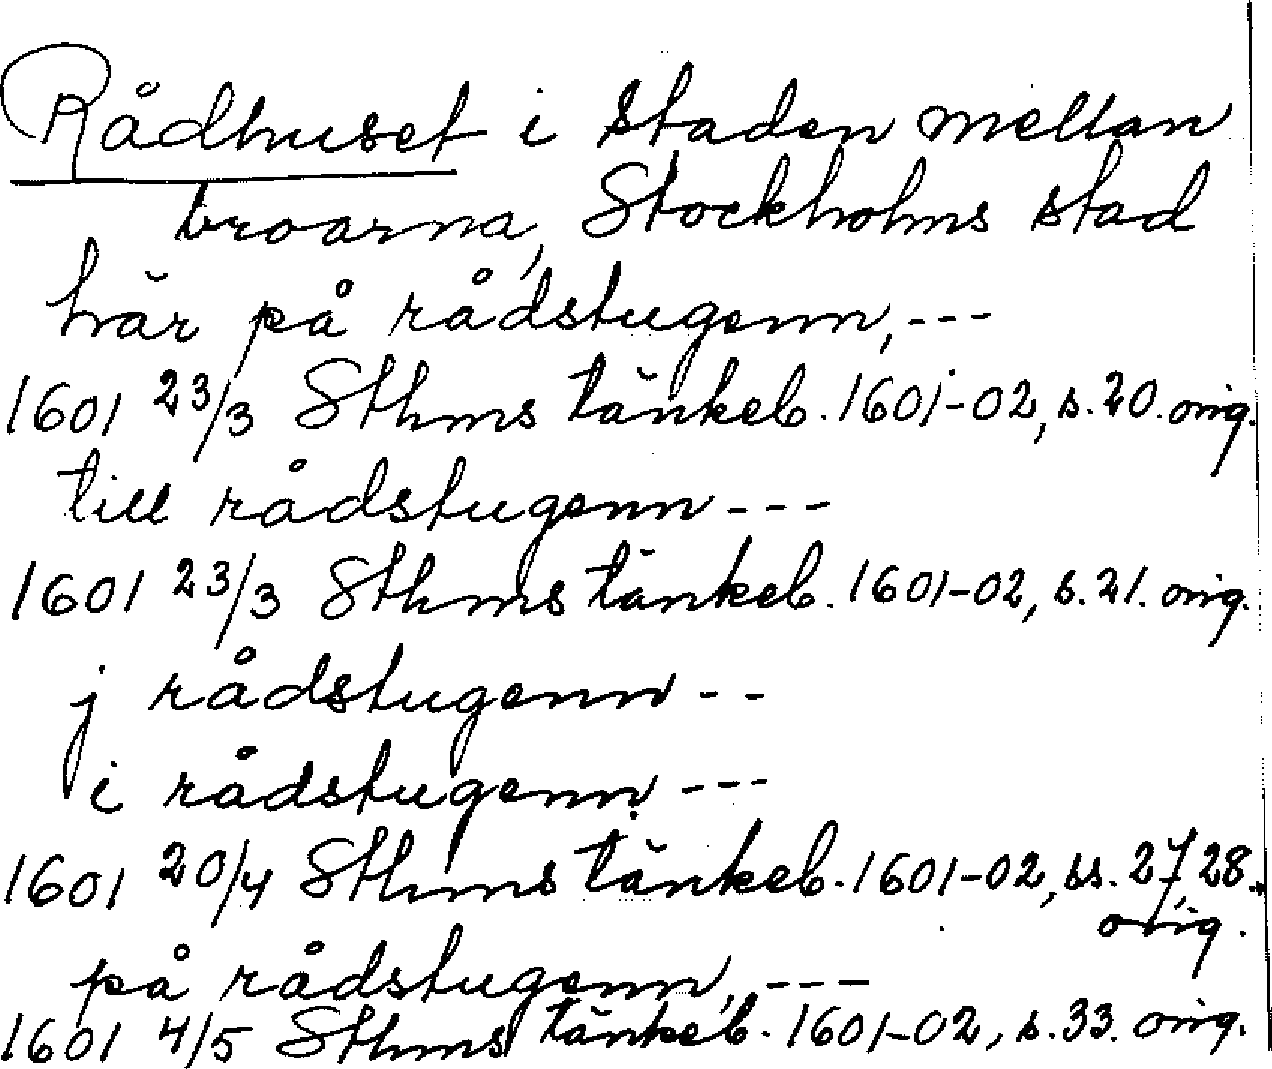 Rådhuset i staden mellan
broarna, Stockholms stad
här på rådstugenn, ---
1601 23/3 Sthms tänkeb. 1601-02, s. 20. orig.
till rådstugenn ---
1601 23/3 Sthms tänkeb. 1601-02, s. 21. orig.
j rådstugenn --
i rådstugenn ---
1601 20/4 Sthms tänkeb. 1601-02, ss. 27, 28.
orig.
på rådstugenn, ---
1601 4/5 Sthms tänkeb. 1601-02, s. 33. orig.